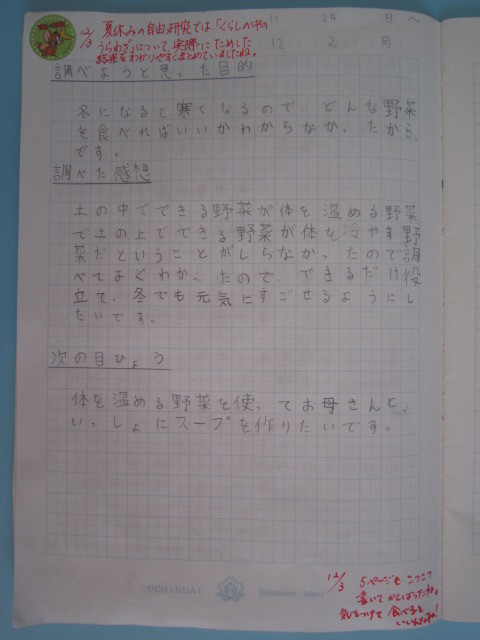 12/3 夏休みの自由研究では「くらしの中の
うらわざ」について実際にためした
結果をわかりやすくまとめていましたね。
11 24 月〜
12 2 月
調べようと思った目的
冬になると寒くなるので、どんな野菜
を食べればいいかわからなかったから
です。
調べた感想
土の中でできる野菜が体を温める野菜
で土の上でできる野菜が体を冷やす野
菜だということがしらなかったので調
べてよくわかったので、できるだけ役
立て、冬でも元気にすごせるようにし
たいです。
次の目ひょう
体を温める野菜を使ってお母さんと、
いっしょにスープを作りたいです。
12/3 5ページもこつこつ
書いてがんばったね。
気をつけて食べると
いいんだね!
UCHINDAI Elementary School